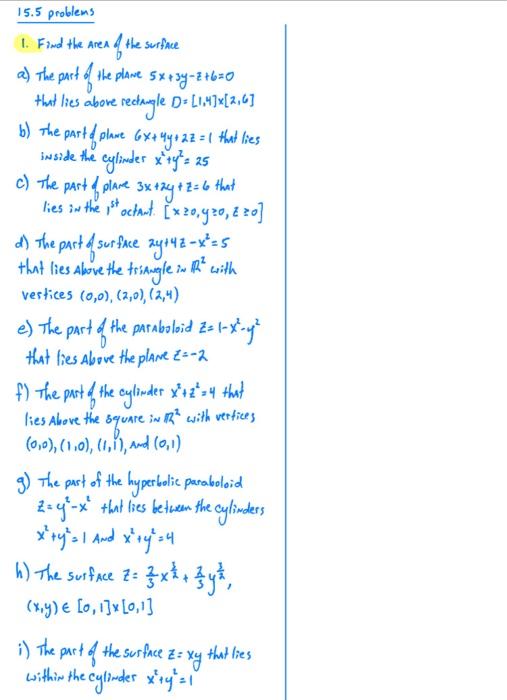 15.5 problems
1. Find the Area of the surface
a) The part of the plane 5x+3y-z+6=0
that lies above rectangle D=[1,4]x[2,6]
b) The part of plane 6x+4y+2z=1 that lies
inside the cylinder x²+y²=25
c) The part of plane 3x+2y+z=6 that
lies in the 1st octant. [x≥0,y≥0,z≥0]
d) The part of surface 2y+4z-x²=5
that lies Above the triangle in ℝ² with
vertices (0,0), (2,0), (2,4)
e) The part of the paraboloid z=1-x²-y²
that lies Above the plane z=-2
f) The part of the cylinder x²+z²=4 that
lies Above the square in ℝ² with vertices
(0,0), (1,0), (1,1), and (0,1)
g) The part of the hyperbolic paraboloid
z=y²-x² that lies between the cylinders
x²+y²=1 And x²+y²=4
h) The surface z= 2/3 x^(3/2) + 2/3 y^(3/2),
(x,y) ∈ [0,1]x[0,1]
i) The part of the surface z=xy that lies
within the cylinder x²+y²=1